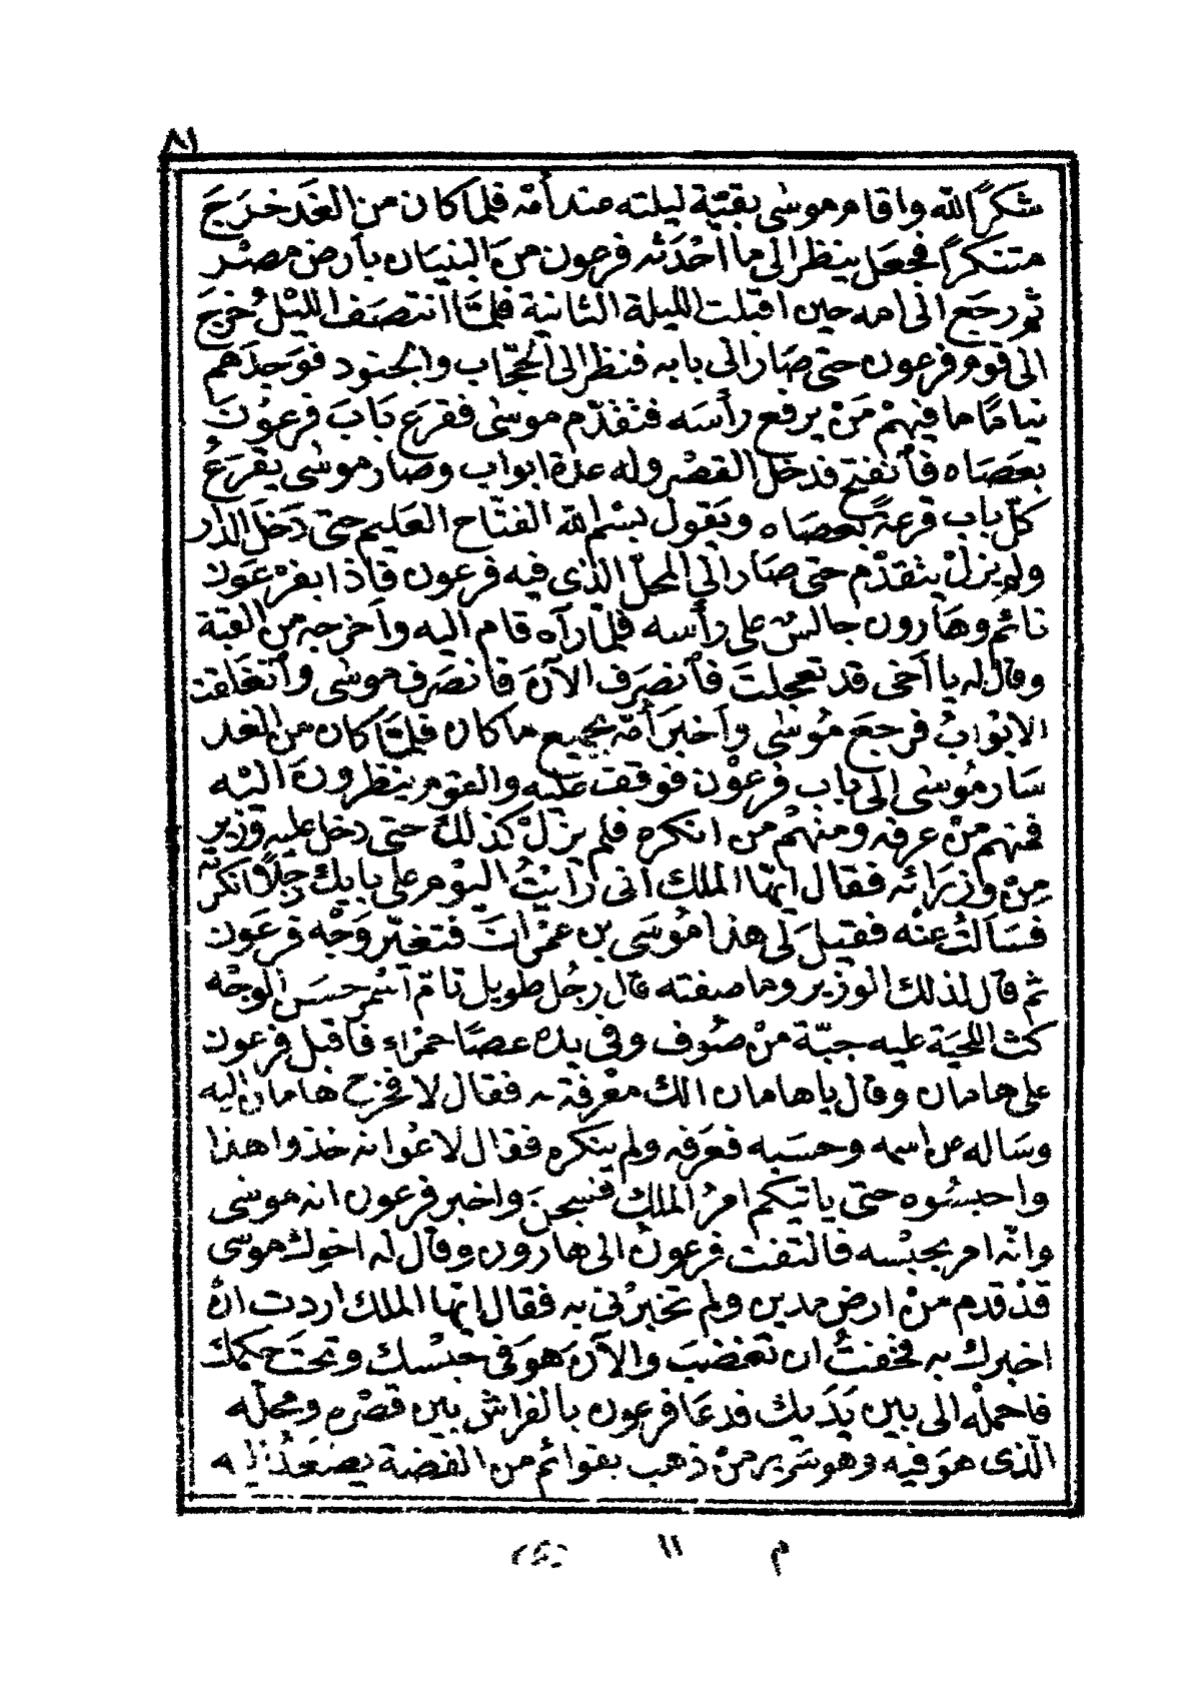 ٨١
شكرًا لله واقام موسى بقيّة ليلته عند أمّه فلما كان من الغَد خرَجَ
متنكرًا فجعل ينظر الى ما أحْدَثه فرعون مِنَ البنيان بأرض مصْر
ثم رجَع الى امه حين اقبلت الليلة الثانية فلمّا انتصَف الليْلُ خرج
الى قوم فرعون حتى صَار الى بابه فنظر الى الحجّاب والجنود فوَجدَهم
نيامًا ما فيهمْ مَنْ يرفع رأسَه فتقدّم موسى فقرَع بَابَ فرعوْنَ
بعَصَاه فأنفتح فدخل القصْر وله عدة ابواب وصار موسى يقرَعُ
كلّ باب قرعةً بعصَاه ويَقول بسْم الله الفتّاح العَليم حتى دَخلَ الدار
ولم يزلْ يتقدّم حتى صَار الى المحلّ الذى فيه فرعون فاذا بفرْعَون
نائم وهَارون جالسٌ على رأسه فلمّا رآه قام اليه وأخرجه من القبة
وقال له يا أخى قد تعجلتَ فأنصَرف الآنَ فانصَرف موسى وأنغَلقت
الابْوابُ فرجعَ مُوسَى وأخبرَ أمّه بجميع ما كان فلمّا كان من الغد
سَار مُوسى الى باب فرعوْن فوقفَ عليْه والقوم ينظرونَ اليْه
فمنهم منْ عرفه ومنهُم من انكره فلم يزلْ كذلكَ حتى دخل عليه وَزير
مِنْ وزرَائه فقال أيّها الملك انى رَأيْتُ اليوْم على بابك رجلًا أنكرتُه
فسَألتُ عنْه فقيلَ لى هذا مُوسَى بن عمْرانَ فتغيّر وَجْه فرعَون
ثم قال لذلك الوزير وما صفته قال رجُل طويل تامّ أسْمر حسَن الوجْه
كث اللحيَة عليه جبّة مِنْ صُوف وفى يده عصًا حمْراء فاقبل فرعون
على هامان وقال يا هامان الك معْرفة به فقال لا فخرج هامان اليه
وسَاله عن اسمه وحسَبه فعَرفه ولم ينكره فقال لاعْوانه خذوا هذا
واحبسُوه حتى ياتيكم امرُ الملك فسجن واخبر فرعون انه موسَى
وانّه امر بحبْسه فالتفت فرعونُ الى هارون وقال له اخوك موسى
قدْ قدم منْ ارض مدين ولم تخبرْنى به فقال ايّها الملك اردت انْ
اخبرك به فخفتُ ان تغضبَ والآن هوَ فى حبْسك وتحتَ حكمك
فاحملْه الى بين يَدَيك فدعَا فرعون بالفراش بين قصْره ومحلّه
الّذى هوَ فيه وهو سَرير منْ ذهب بقوائم من الفضة يصْعَدُ إليه
م ١١